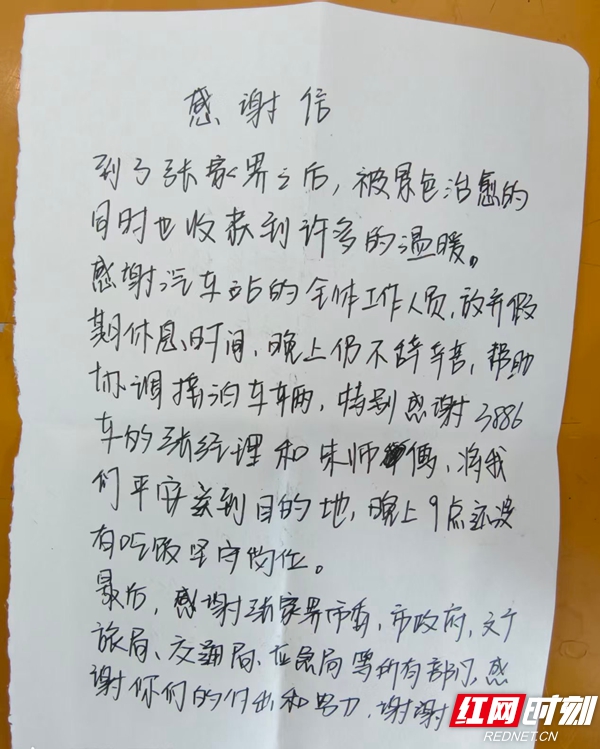 感谢信
到了张家界之后，被景色治愈的
同时也收获到许多的温暖。
感谢汽车站的全体工作人员，放弃假
期休息时间，晚上仍不辞辛苦，帮助
协调接泊车辆，特别感谢3886
车的张经理和朱师傅，将我
们平安送到目的地，晚上9点还没
有吃饭坚守岗位。
最后，感谢张家界市委、市政府、文广
旅局、交通局、应急局等所有部门，感
谢你们的付出和努力，谢谢
红网时刻
REDNET.CN